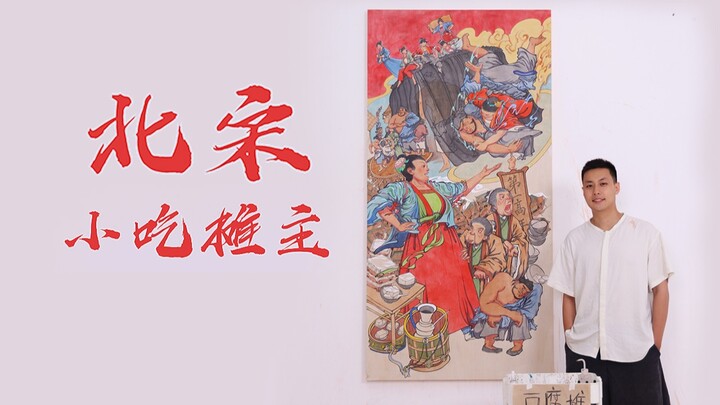 北宋
小吃摊主
豆腐摊